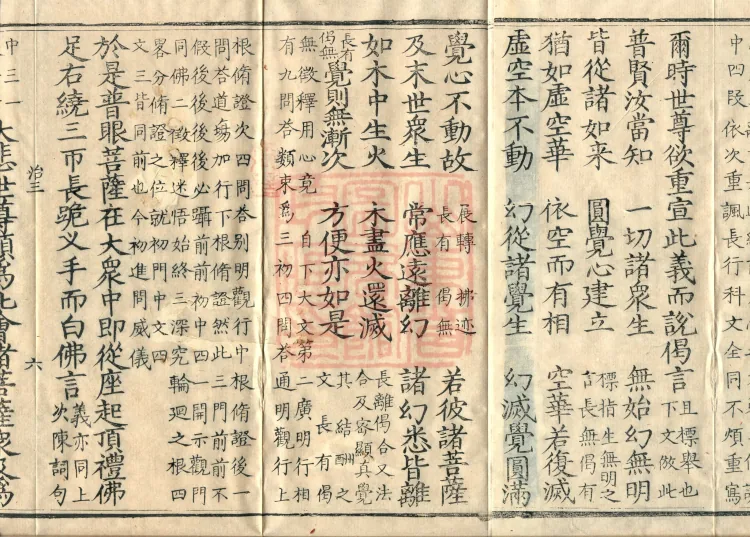 中四段依次重諷長行科文全同不煩重寫
爾時世尊欲重宣此義而說偈言 且標舉也 下文倣此
普賢汝當知 一切諸衆生 無始幻無明
皆從諸如來 圓覺心建立 標指生無明之 言長無偈有
猶如虛空華 依空而有相 空華若復滅
虛空本不動 幻從諸覺生 幻滅覺圓滿
覺心不動故 展轉拂迹 長有偈無 若彼諸菩薩
及末世衆生 常應遠離幻 諸幻悉皆離
如木中生火 木盡火還滅 長離偈合又法 合及容顯真覺
長有偈無 覺則無漸次 方便亦如是 其結酬之 文長有偈
無徵釋用心竟 自下大文第二廣明行相
有九問荅類束爲三初四問荅通明觀行上
根脩證次四問荅別明觀行中根脩證後一
問荅道場加行下根脩證然此三門前前不
假後後後後必躡前前初中四一開示觀門
同佛二徵釋迷悟始終三深究輪廻之根四
畧分脩證之位就初門中文四
文三皆同前也今初進問威儀
於是普眼菩薩在大衆中即從座起頂禮佛
足右繞三帀長跪叉手而白佛言 義亦同上 次陳詞句
治三 六
中三一 大悲世尊願爲此會諸菩薩衆及爲